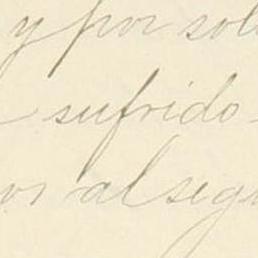 y por sol
sufrido
os al seg